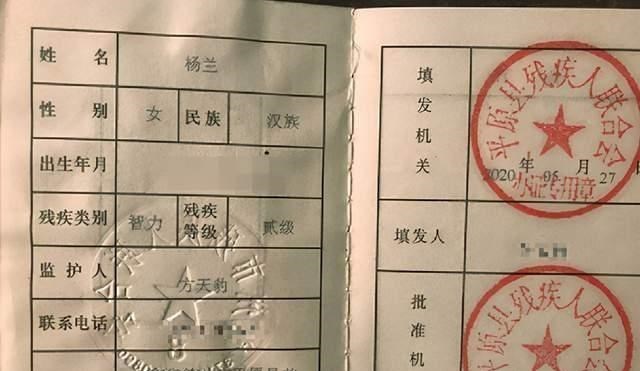 姓名 杨兰
性别 女 民族 汉族
出生年月
残疾类别 智力 残疾等级 贰级
监护人 方天豹
联系电话
填发机关
平原县残疾人联合会
2020年05月27日
办证专用章
填发人
批准机
平原县残疾人联合会